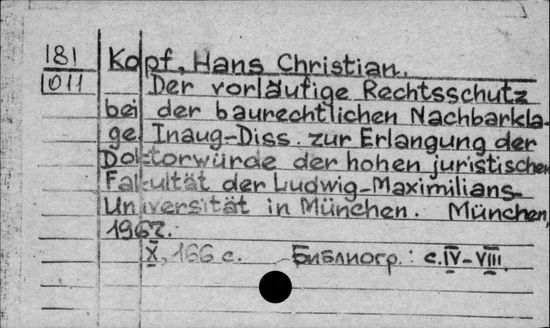 181
1011
Kopf, Hans Christian.
Der vorläufige Rechtsschutz
bei der baurechtlichen Nachbarkla-
ge. Inaug-Diss. zur Erlangung der
Doktorwürde der hohen juristischen
Fakultät der Ludwig-Maximilians-
Universität in München. München,
1967.
X, 166 с. Библиогр.: с. IV-VIII.